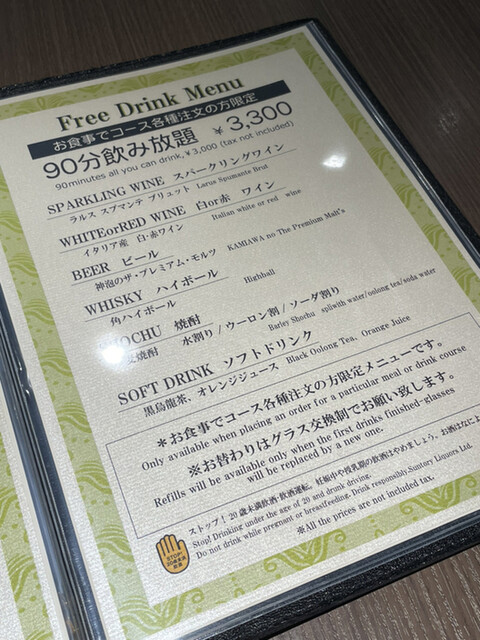 Free Drink Menu
お食事でコース各種注文の方限定
90分飲み放題 ¥ 3,300
90minutes all you can drink, ¥3,000 (tax not included)
SPARKLING WINE スパークリングワイン
ラルス スプマンテ ブリュット Larus Spumante Brut
WHITEorRED WINE 白or赤 ワイン
イタリア産 白・赤ワイン Italian white or red wine
BEER ビール
神泡のザ・プレミアム・モルツ KAMIAWA no The Premium Malt's
WHISKY ハイボール
角ハイボール Highball
OCHU 焼酎
焼酎 水割り/ウーロン割/ソーダ割り
Barley Shochu spliwith water/oolong tea/soda water
SOFT DRINK ソフトドリンク
黒烏龍茶、オレンジジュース Black Oolong Tea、Orange Juice
*お食事でコース各種注文の方限定メニューです。
Only available when placing an order for a particular meal or drink course
※お替わりはグラス交換制でお願い致します。
Refills will be available only when the first drinks finished-glasses
will be replaced by a new one.
ストップ! 20歳未満飲酒・飲酒運転。妊娠中や授乳期の飲酒はやめましょう。お酒はなによ
Stop! Drinking under the age of 20 and drunk driving.
Do not drink while pregnant or breastfeeding. Drink responsibly.Suntory Liquors Ltd.
※All the prices are not included tax.
STOP!
20歳未満
飲酒